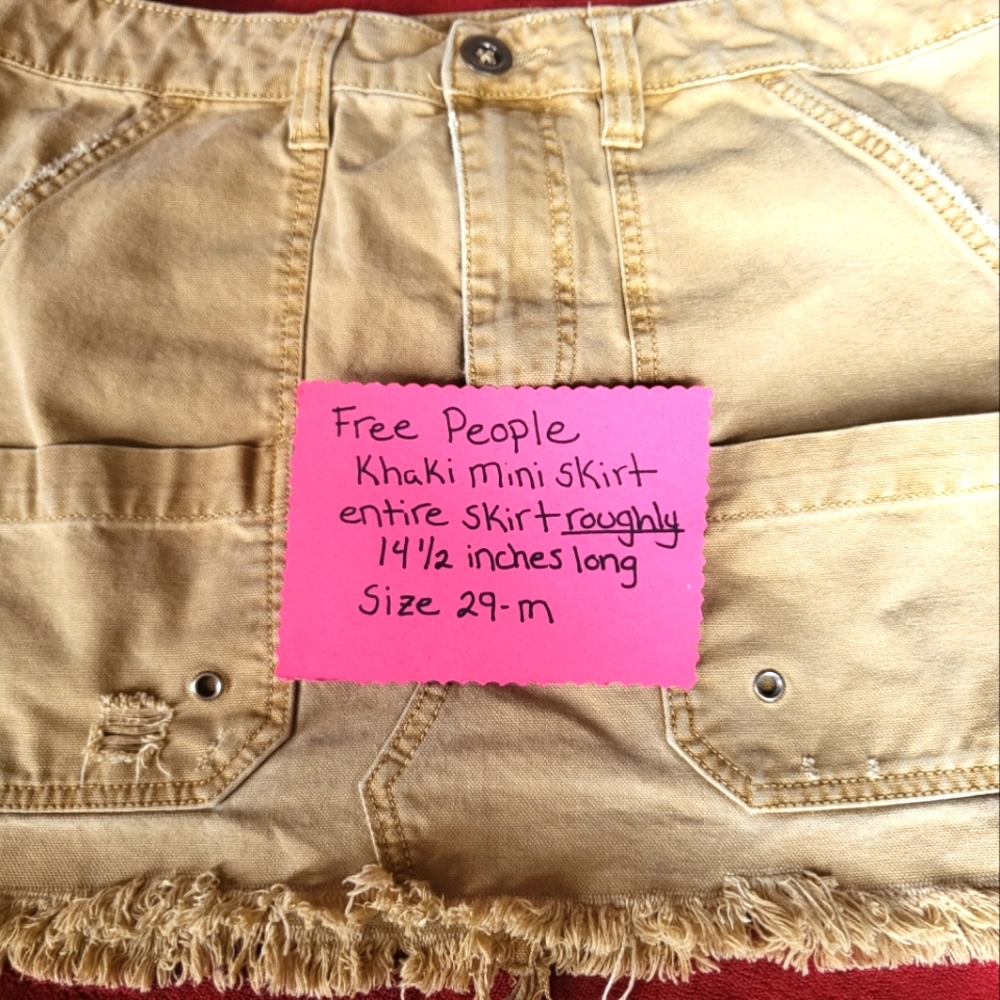 Free People
Khaki mini skirt
entire skirt roughly
14 1/2 inches long
Size 29-m